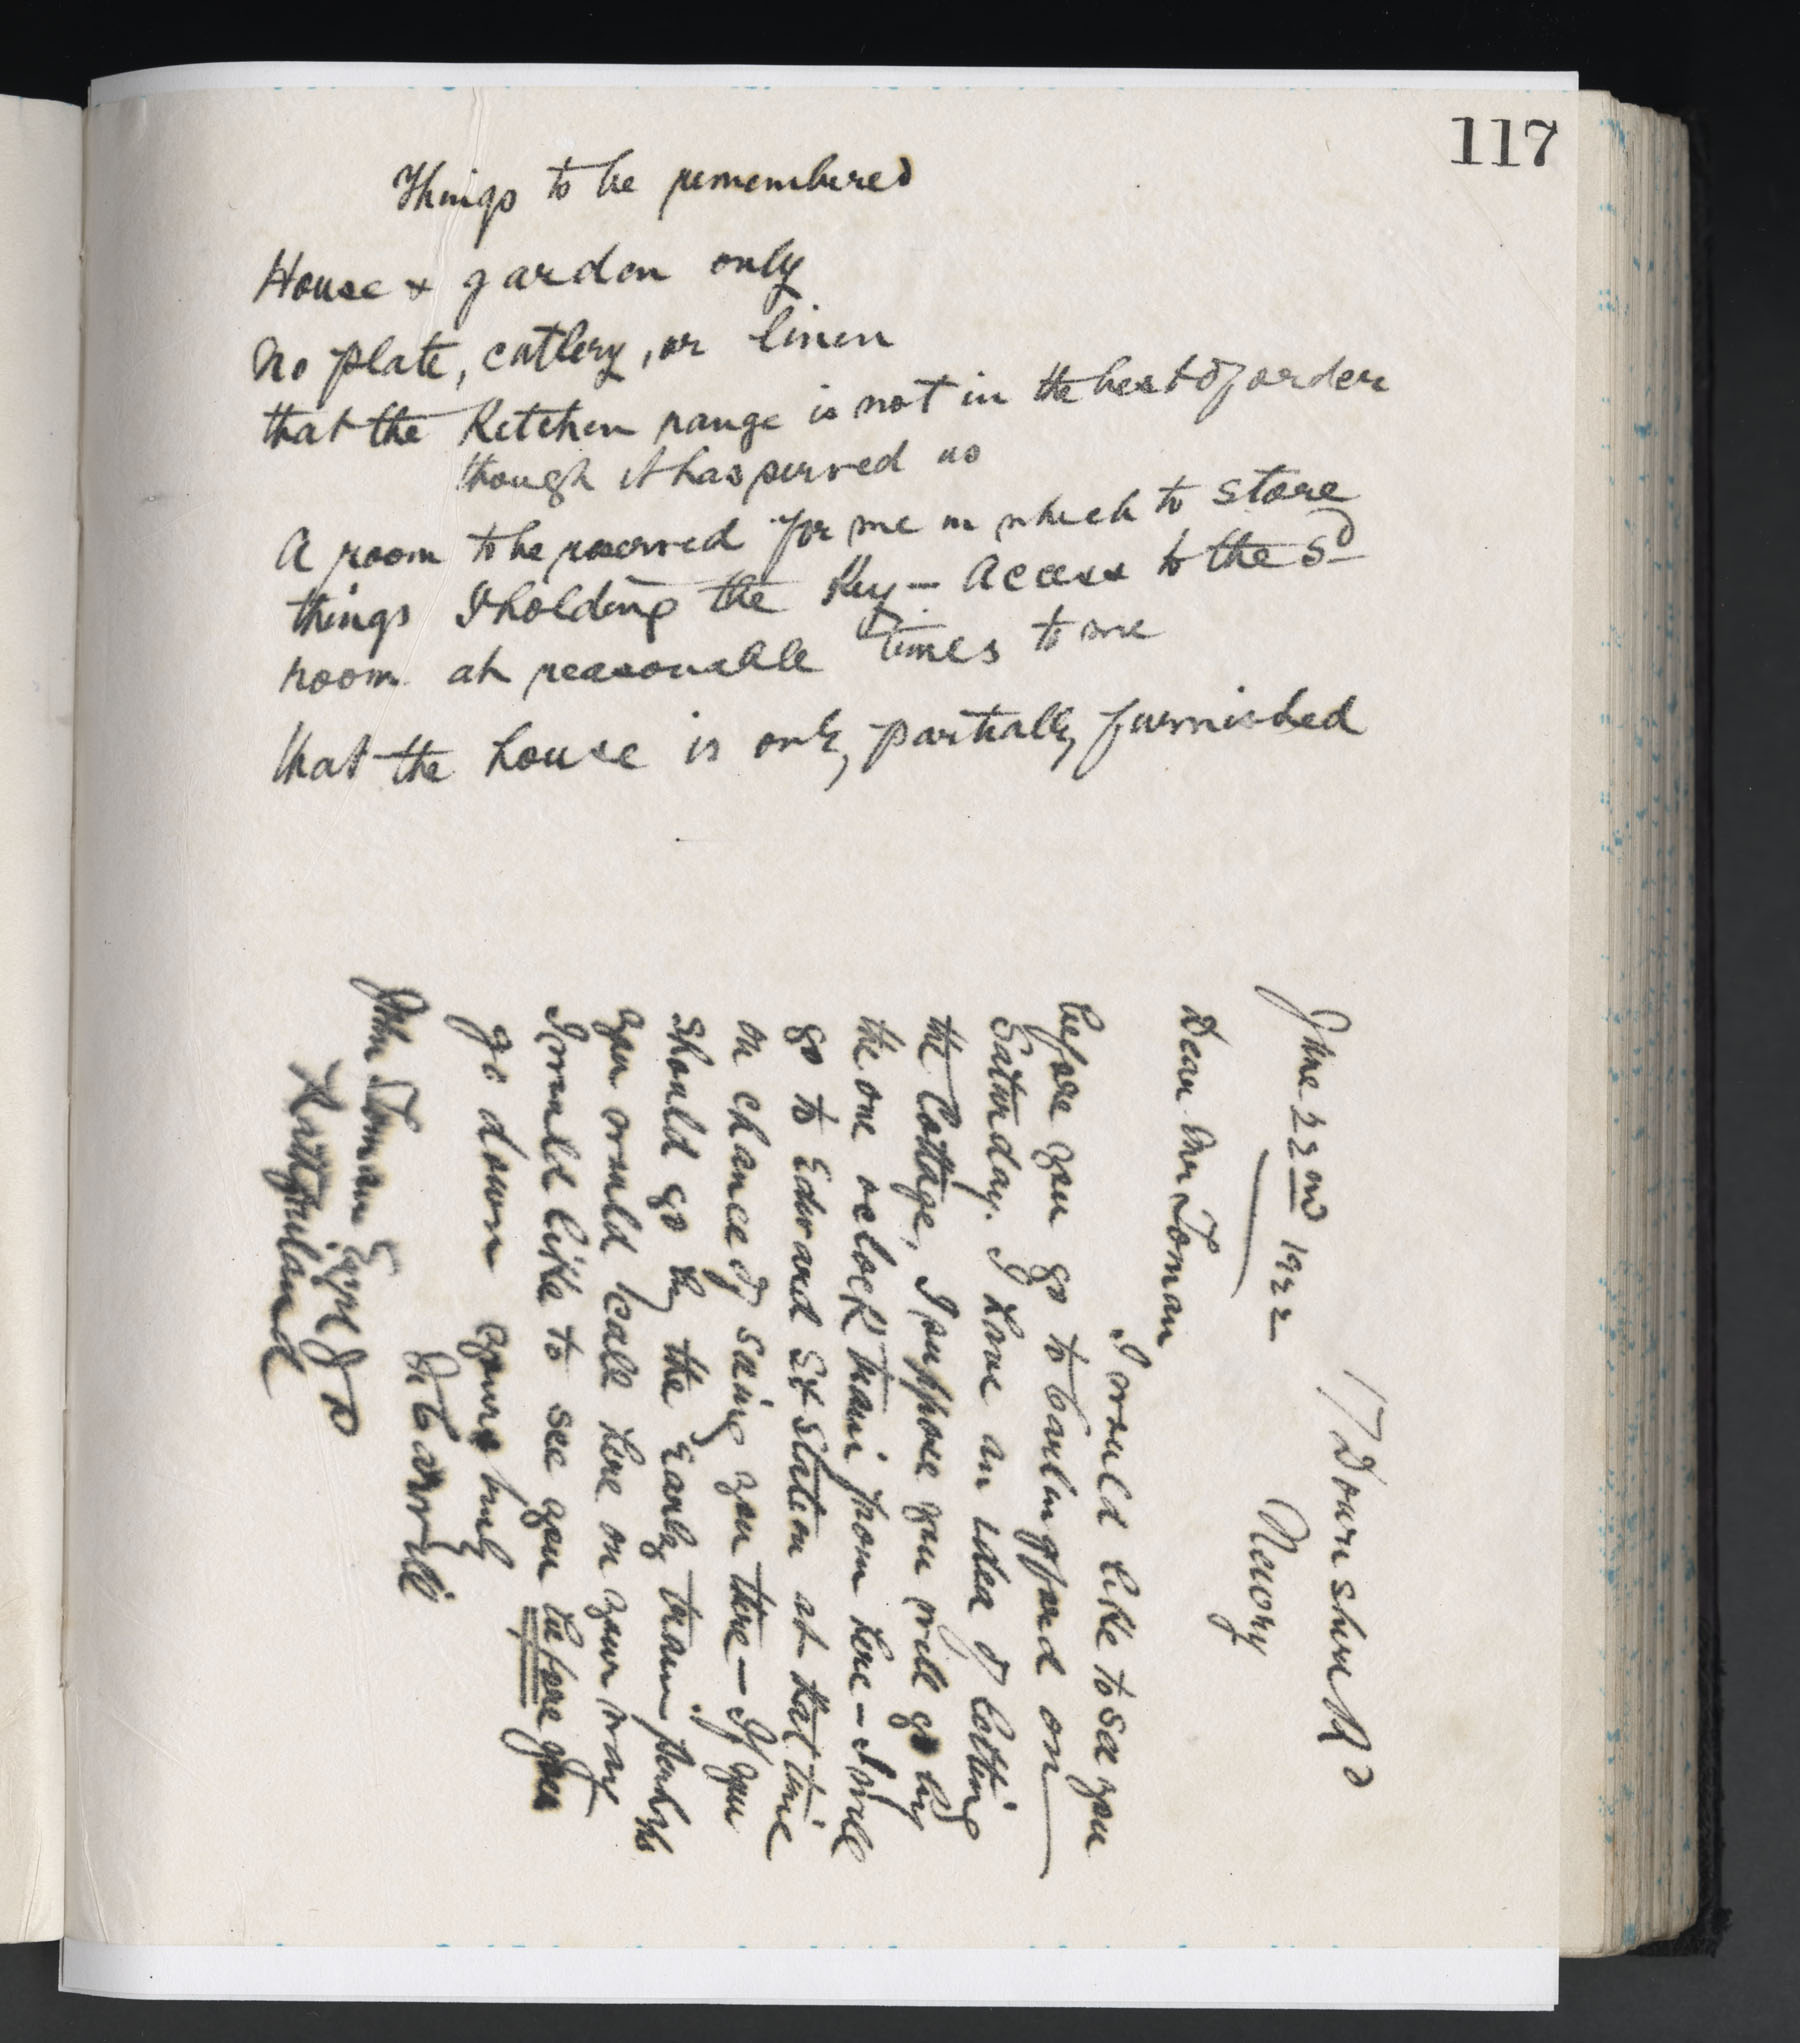 117
Things to be remembered
House & garden only
No plate, cutlery, or linen
that the Kitchen range is not in the best of order
though it has served us
A room to be reserved for me in which to store
things I holding the Key — Access to the sd
room at reasonable times to me
that the house is only partially furnished
17 Downshire Rd
Newry
June 22nd 1922
Dear Mr Toman
I would like to see you
before you go to Carlingford on
Saturday. I have an idea of letting
the Cottage, I suppose you will go by
the one oclock train from here — I will
go to Edward St Station at that time
on chance of seeing you there — If you
should go by the Early train perhaps
you would call here on your way
I would like to see you before you
go down yours truly
John Toman Esqre J P